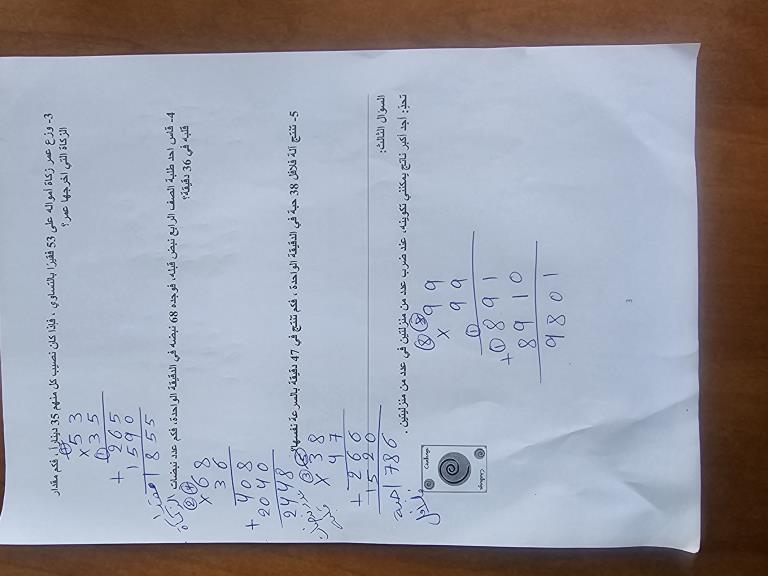 3- وزع عمر زكاة امواله على 53 فقيرًا بالتساوي ، فإذا كان نصيب كل منهم 35 دينارًا، فكم مقدار
الزكاة التي اخرجها عمر؟
53
× 35
265
+
1590
1855
4- قاس احد طلبة الصف الرابع نبض قلبه، فوجده 68 نبضه في الدقيقة الواحدة، فكم عدد نبضات
قلبه في 36 دقيقة؟
68
× 36
408
+
2040
2448
5- تنتج آلة فلافل 38 حبة في الدقيقة الواحدة ، فكم تنتج في 47 دقيقة بالسرعة نفسها؟
38
× 47
266
+
1520
1786 حبة
فلافل
السؤال الثالث:
تحدٍ: اجد اكبر ناتج يمكنني تكوينه، عند ضرب عدد من منزلتين في عدد من منزلتين .
99
× 99
891
+
8910
9801
3